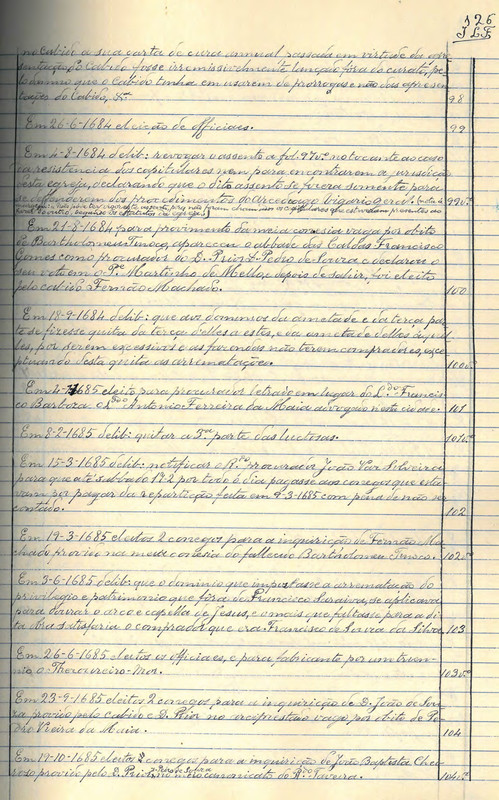 126
no Cabido a sua carta de cura annual passada em virtude da apre-
sentação do Cabido fosse irremissivelmente lançado fóra do curato, pe-
lo damno que o Cabido tinha em usarem de prorrogas e não das apresen-
tações do Cabido, &ª 98
Em 26-6-1684 eleição de officiaes. 99
Em 4-8-1684 delib: revogar o assento a fol. 97 vº no tocante ao caso
da resistencia dos capitulares nem para encontrarem a jurisdição
desta egreja, declarando que o dito assento se fizera somente para
se defenderem dos procedimentos do Arcediago Vigario geral. 99vº
Em 21-8-1684 para provimento da meia conesia vaga por obito
de Bartholomeu Tinoco, appareceu o abbade das Caldas Francisco
Gomes como procurador do D. Prior D. Pedro de Sousa e declarou o
seu voto em o Pe Martinho de Mello, e depois de sahir, foi eleito
pelo cabido Fernão Machado. 100
Em 18-9-1684 delib: que aos dominios da ametade e da terça par-
te se fizesse quita da terça delles a estes, e da ametade delles áquel-
les, por serem excessivos e as fazendas não terem compradores, exce-
ptuando desta quita as arrematações. 100vº
Em 1685 eleito para procurador letrado em lugar do L.do Francis-
co Barboza o L.do Antonio Ferreira da Maia advogado nesta cidade. 101
Em 8-2-1685 delib: quitar a 3ª parte das luctosas. 101vº
Em 15-3-1685 delib: notificar o R.do Procurador João Vaz Silveira
para que até sabbado 17 por todo o dia pagasse aos conegos que esta-
vam por pagar da repartição feita em 9-3-1685 com pena de não ser
contado. 102
Em 19-3-1685 eleitos 2 conegos para a inquirição de Fernão Ma-
chado provido na meia conesia do fallecido Bartholomeu Tinoco. 102vº
Em 3-6-1685 delib: que o dominio que importasse a arrematação do
privilegio e patrimonio que fóra de Francisco Saraiva, se applicava
para dourar o arco e capella de Jesus, e o mais que faltasse para a di-
ta obra satisfaria o comprador que era Francisco de Sousa da Silva. 103
Em 26-6-1685 eleitos os officiaes, e para fabricante por um trien-
nio o Thesoureiro-Mor. 103vº
Em 23-9-1685 eleitos 2 conegos para a inquirição de D. João de Sou-
za provido pelo cabido e D. Prior no arcyprestado vago por obito de Pe-
dro Vieira da Maia. 104
Em 19-10-1685 eleitos 2 conegos para a inquirição de João Baptista
provido pelo D. Prior D. Pedro de Sousa no meio canonicato do R.do Taveira. 104vº